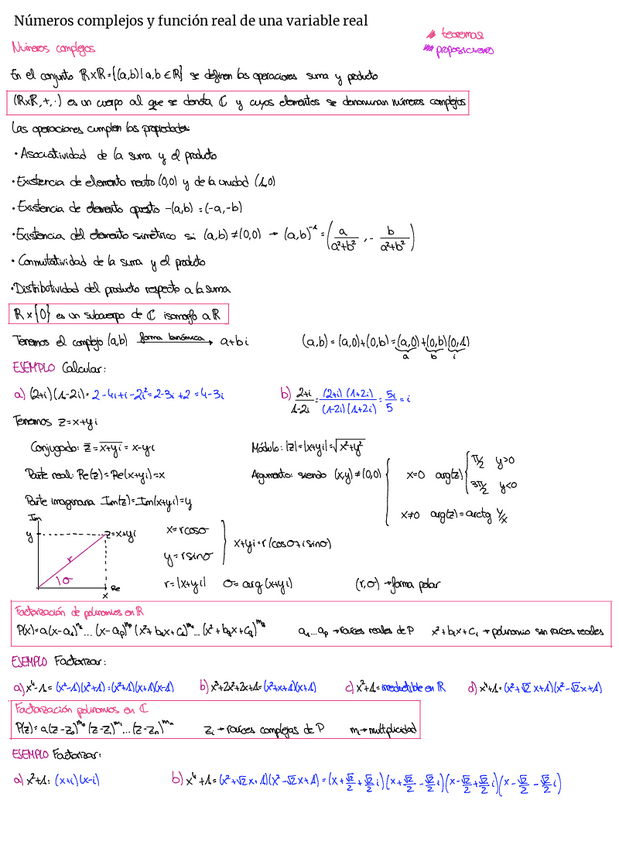 Números complejos y función real de una variable real
* teoremas
Números complejos
* proposiciones
En el conjunto ℝxℝ={(a,b)|a,b∈ℝ} se definen las operaciones suma y producto
(ℝxℝ,+,·) es un cuerpo al que se denota ℂ y cuyos elementos se denominan números complejos
Las operaciones cumplen las propiedades:
• Asociatividad de la suma y el producto
• Existencia de elemento neutro (0,0) y de la unidad (1,0)
• Existencia de elemento opuesto -(a,b)=(-a,-b)
• Existencia del elemento simétrico si (a,b)≠(0,0) → (a,b)⁻¹=(a/(a²+b²), -b/(a²+b²))
• Conmutatividad de la suma y el producto
• Distributividad del producto respecto a la suma
ℝx{0} es un subcuerpo de ℂ isomorfo a ℝ
Tenemos el complejo (a,b) forma binómica → a+bi (a,b)=(a,0)+(0,b)=(a,0)+(b,0)(0,1)
a b i
EJEMPLO Calcular:
a) (2+i)(1-2i)=2-4i+i-2i²=2-3i+2=4-3i b) (2+i)/(1-2i)=(2+i)(1+2i)/(1-2i)(1+2i)=5i/5=i
Tenemos z=x+yi
Conjugado: z̅=x+yi=x-yi Módulo: |z|=|x+yi|=√x²+y²
Parte real: Re(z)=Re(x+yi)=x Argumento: siendo (x,y)≠(0,0) { x=0 arg(z) { π/2 y>0
3π/2 y<0
Parte imaginaria Im(z)=Im(x+yi)=y
x≠0 arg(z)=arctg y/x
Im
y z=x+yi
r
σ
x Re
x=rcosσ
y=rsinσ
x+yi=r(cosσ+isinσ)
r=|x+yi| σ=arg(x+yi) (r,σ)→forma polar
Factorización de polinomios en ℝ
P(x)=a(x-a₁)ⁿ¹...(x-aₚ)ⁿᵖ(x²+b₁x+c₁)ᵐ¹...(x²+bqx+cq)ᵐq a₁...aₚ→raíces reales de P x²+bᵢx+cᵢ→polinomio sin raíces reales
EJEMPLO Factorizar:
a) x⁴-1=(x²-1)(x²+1)=(x²+1)(x+1)(x-1) b) x³+2x²+2x+1=(x²+x+1)(x+1) c) x²+1=irreducible en ℝ d) x⁴+1=(x²+√2x+1)(x²-√2x+1)
Factorización polinomios en ℂ
P(z)=a(z-z₀)ᵐ⁰(z-z₁)ᵐ¹...(z-zₙ)ᵐⁿ zᵢ→raíces complejas de P mᵢ→multiplicidad
EJEMPLO Factorizar:
a) x²+1=(x+i)(x-i) b) x⁴+1=(x²+√2x+1)(x²-√2x+1)=(x+√2/2+√2/2i)(x+√2/2-√2/2i)(x-√2/2+√2/2i)(x-√2/2-√2/2i)